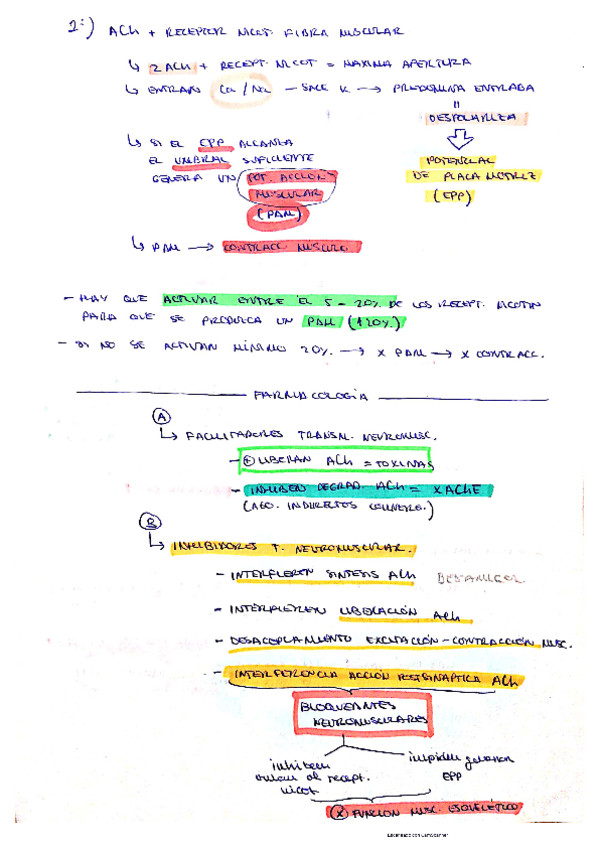 2º) ACh + RECEPTOR NICOT. FIBRA MUSCULAR
↳ 2 ACh + RECEPT. NICOT = MÁXIMA APERTURA
↳ ENTRAN Ca / Na — SALE K → PREDOMINA ENTRADA
"
DESPOLARIZA
↳ SI EL EPP ALCANZA
EL UMBRAL SUFICIENTE
GENERA UN POT. ACCIÓN
MUSCULAR
(PAM)
POTENCIAL
DE PLACA MOTRIZ
(EPP)
↳ PAM → CONTRACC. MUSCUL.
- HAY QUE ACTIVAR ENTRE EL 5 - 20% DE LOS RECEPT. NICOTIN
PARA QUE SE PRODUZCA UN PAM (+20%)
- SI NO SE ACTIVAN MÍNIMO 20% → X PAM → X CONTRACC.
FARMACOLOGÍA
A
↳ FACILITADORES TRANSM. NEUROMUSC.
- ⊕ LIBERAN ACh = TOXINAS
- INHIBEN DEGRAD. ACh = X AChE
(AGO. INDIRECTOS COLINERG.)
B
↳ INHIBIDORES T. NEUROMUSCULAR.
- INTERFIEREN SÍNTESIS ACh
- INTERFIEREN LIBERACIÓN ACh
- DESACOPLAMIENTO EXCITACIÓN - CONTRACCIÓN MUSC.
- INTERFERENCIA ACCIÓN POSTSINÁPTICA ACh
BLOQUEANTES
NEUROMUSCULARES
inhiben
unión al recept.
nicot
impiden generación
EPP
X FUNCIÓN MUSC. ESQUELÉTICO
Escaneado con CamScanner